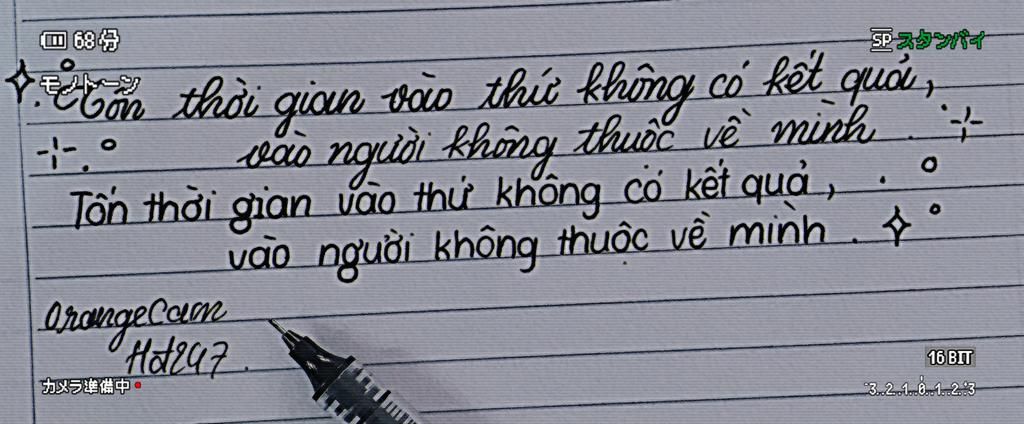 68分
SP スタンバイ
モノトーン
Tốn thời gian vào thứ không có kết quả,
vào người không thuộc về mình.
Tốn thời gian vào thứ không có kết quả,
vào người không thuộc về mình.
OrangeCam
Hot247.
16BIT
カメラ準備中
3..2..1..0..1..2..3